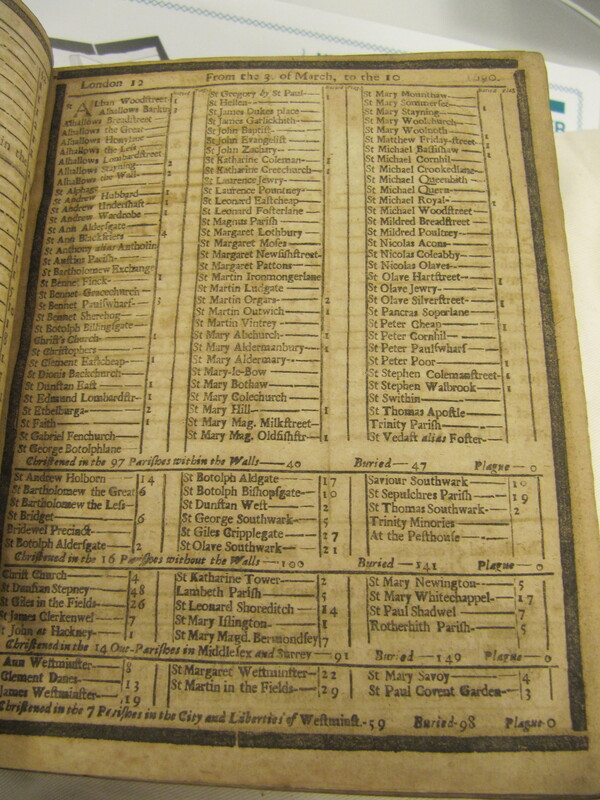 London 12 From the 3. of March, to the 10 1690.
St Alban Woodstreet 1
Alhallows Barkin
Alhallows Breadstreet
Alhallows the Great
Alhallows Honylane
Alhallows the Less
Alhallows Lombardstreet
Alhallows Stayning 2
Alhallows the Wall 2
St Alphage
St Andrew Hubbard 1
St Andrew Undershaft 1
St Andrew Wardrobe 1
St Ann Aldersgate
St Ann Blackfriers 4
St Anthony alias Antholin
St Austins Parish
St Bartholomew Exchange
St Bennet Finck 1
St Bennet Gracechurch
St Bennet Paulswharf 3
St Bennet Sherehog
St Botolph Billingsgate
Christ's Church
St Christophers
St Clement Eastcheap 1
St Dionis Backchurch
St Dunstan East 1
St Edmund Lombardstr 1
St Ethelburga 2
St Faith 1
St Gabriel Fenchurch
St George Botolphlane
St Gregory by St Paul 1
St Hellen
St James Dukes place
St James Garlickhith
St John Baptist
St John Evangelist
St John Zachary
St Katharine Coleman 2
St Katharine Creechurch 1
St Laurence Jewry
St Laurence Pountney
St Leonard Eastcheap
St Leonard Fosterlane
St Magnus Parish
St Margaret Lothbury
St Margaret Moses
St Margaret Newfishstreet
St Margaret Pattons
St Martin Iremongerlane
St Martin Ludgate
St Martin Orgars 2
St Martin Outwich 1
St Martin Vintrey
St Mary Abchurch 1
St Mary Aldermanbury 1
St Mary Aldermary
St Mary-le-Bow
St Mary Bothaw
St Mary Colechurch
St Mary Hill 1
St Mary Mag. Milkstreet
St Mary Mag. Oldfishstr 1
St Mary Mounthaw
St Mary Sommerset
St Mary Stayning
St Mary Woolchurch
St Mary Woolnoth
St Matthew Friday-street
St Michael Bassishaw
St Michael Cornhil
St Michael Crookedlane
St Michael Queenhith
St Michael Quern
St Michael Royal 1
St Michael Woodstreet
St Mildred Breadstreet
St Mildred Poultrey
St Nicolas Acons
St Nicolas Coleabby
St Nicolas Olaves
St Olave Hartstreet 1
St Olave Jewry
St Olave Silverstreet 1
St Pancras Soperlane
St Peter Cheap 1
St Peter Cornhil
St Peter Paulswharf
St Peter Poor 1
St Stephen Colemanstreet 1
St Stephen Walbrook 1
St Swithin
St Thomas Apostle
Trinity Parish
St Vedast alias Foster
Christened in the 97 Parishes within the Walls 40 Buried 47 Plague 0
St Andrew Holborn 14
St Bartholomew the Great 6
St Bartholomew the Less
St Bridget 6
Bridewel Precinct
St Botolph Aldersgate 2
St Botolph Aldgate 17
St Botolph Bishopsgate 10
St Dunstan West 2
St George Southwark 5
St Giles Cripplegate 27
St Olave Southwark 21
Saviour Southwark 10
St Sepulchres Parish 19
St Thomas Southwark 2
Trinity Minories
At the Pesthouse
Christened in the 16 Parishes without the Walls 100 Buried 141 Plague 0
Christ Church 4
St Dunstan Stepney 48
St Giles in the Fields 26
St James Clerkenwel 7
St John at Hackney 1
St Katharine Tower 2
Lambeth Parish 5
St Leonard Shoreditch 14
St Mary Islington 1
St Mary Magd. Bermondsey 7
St Mary Newington 5
St Mary Whitechappel 17
St Paul Shadwel 7
Rotherhith Parish 5
Christened in the 14 Out-Parishes in Middlesex and Surrey 91 Buried 149 Plague 0
Ann Westminster 8
Clement Danes 13
James Westminster 19
St Margaret Westminster 22
St Martin in the Fields 29
St Mary Savoy 4
St Paul Covent Garden 3
Christened in the 7 Parishes in the City and Liberties of Westminst. 59 Buried 98 Plague 0